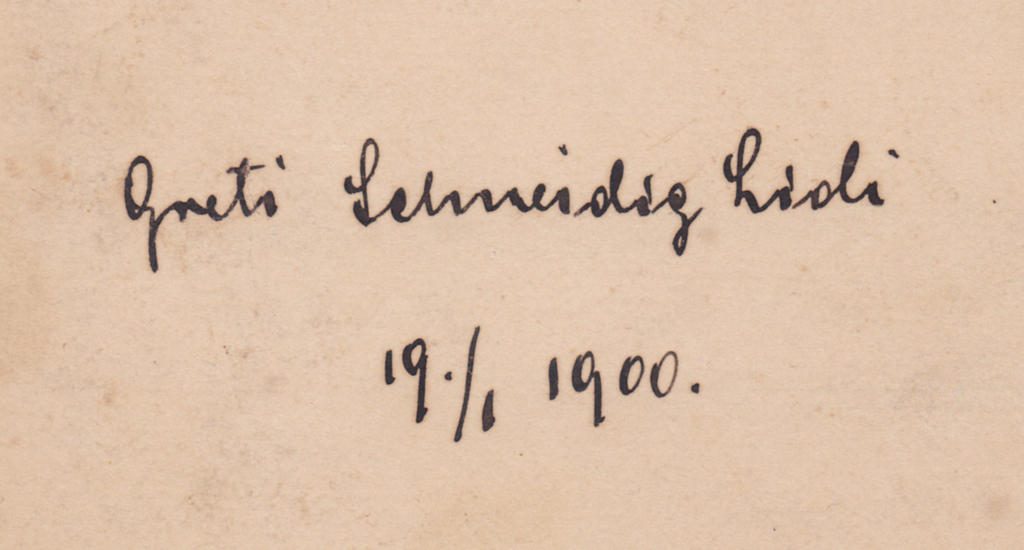 Greti Schneidig Lidi
19./1 1900.